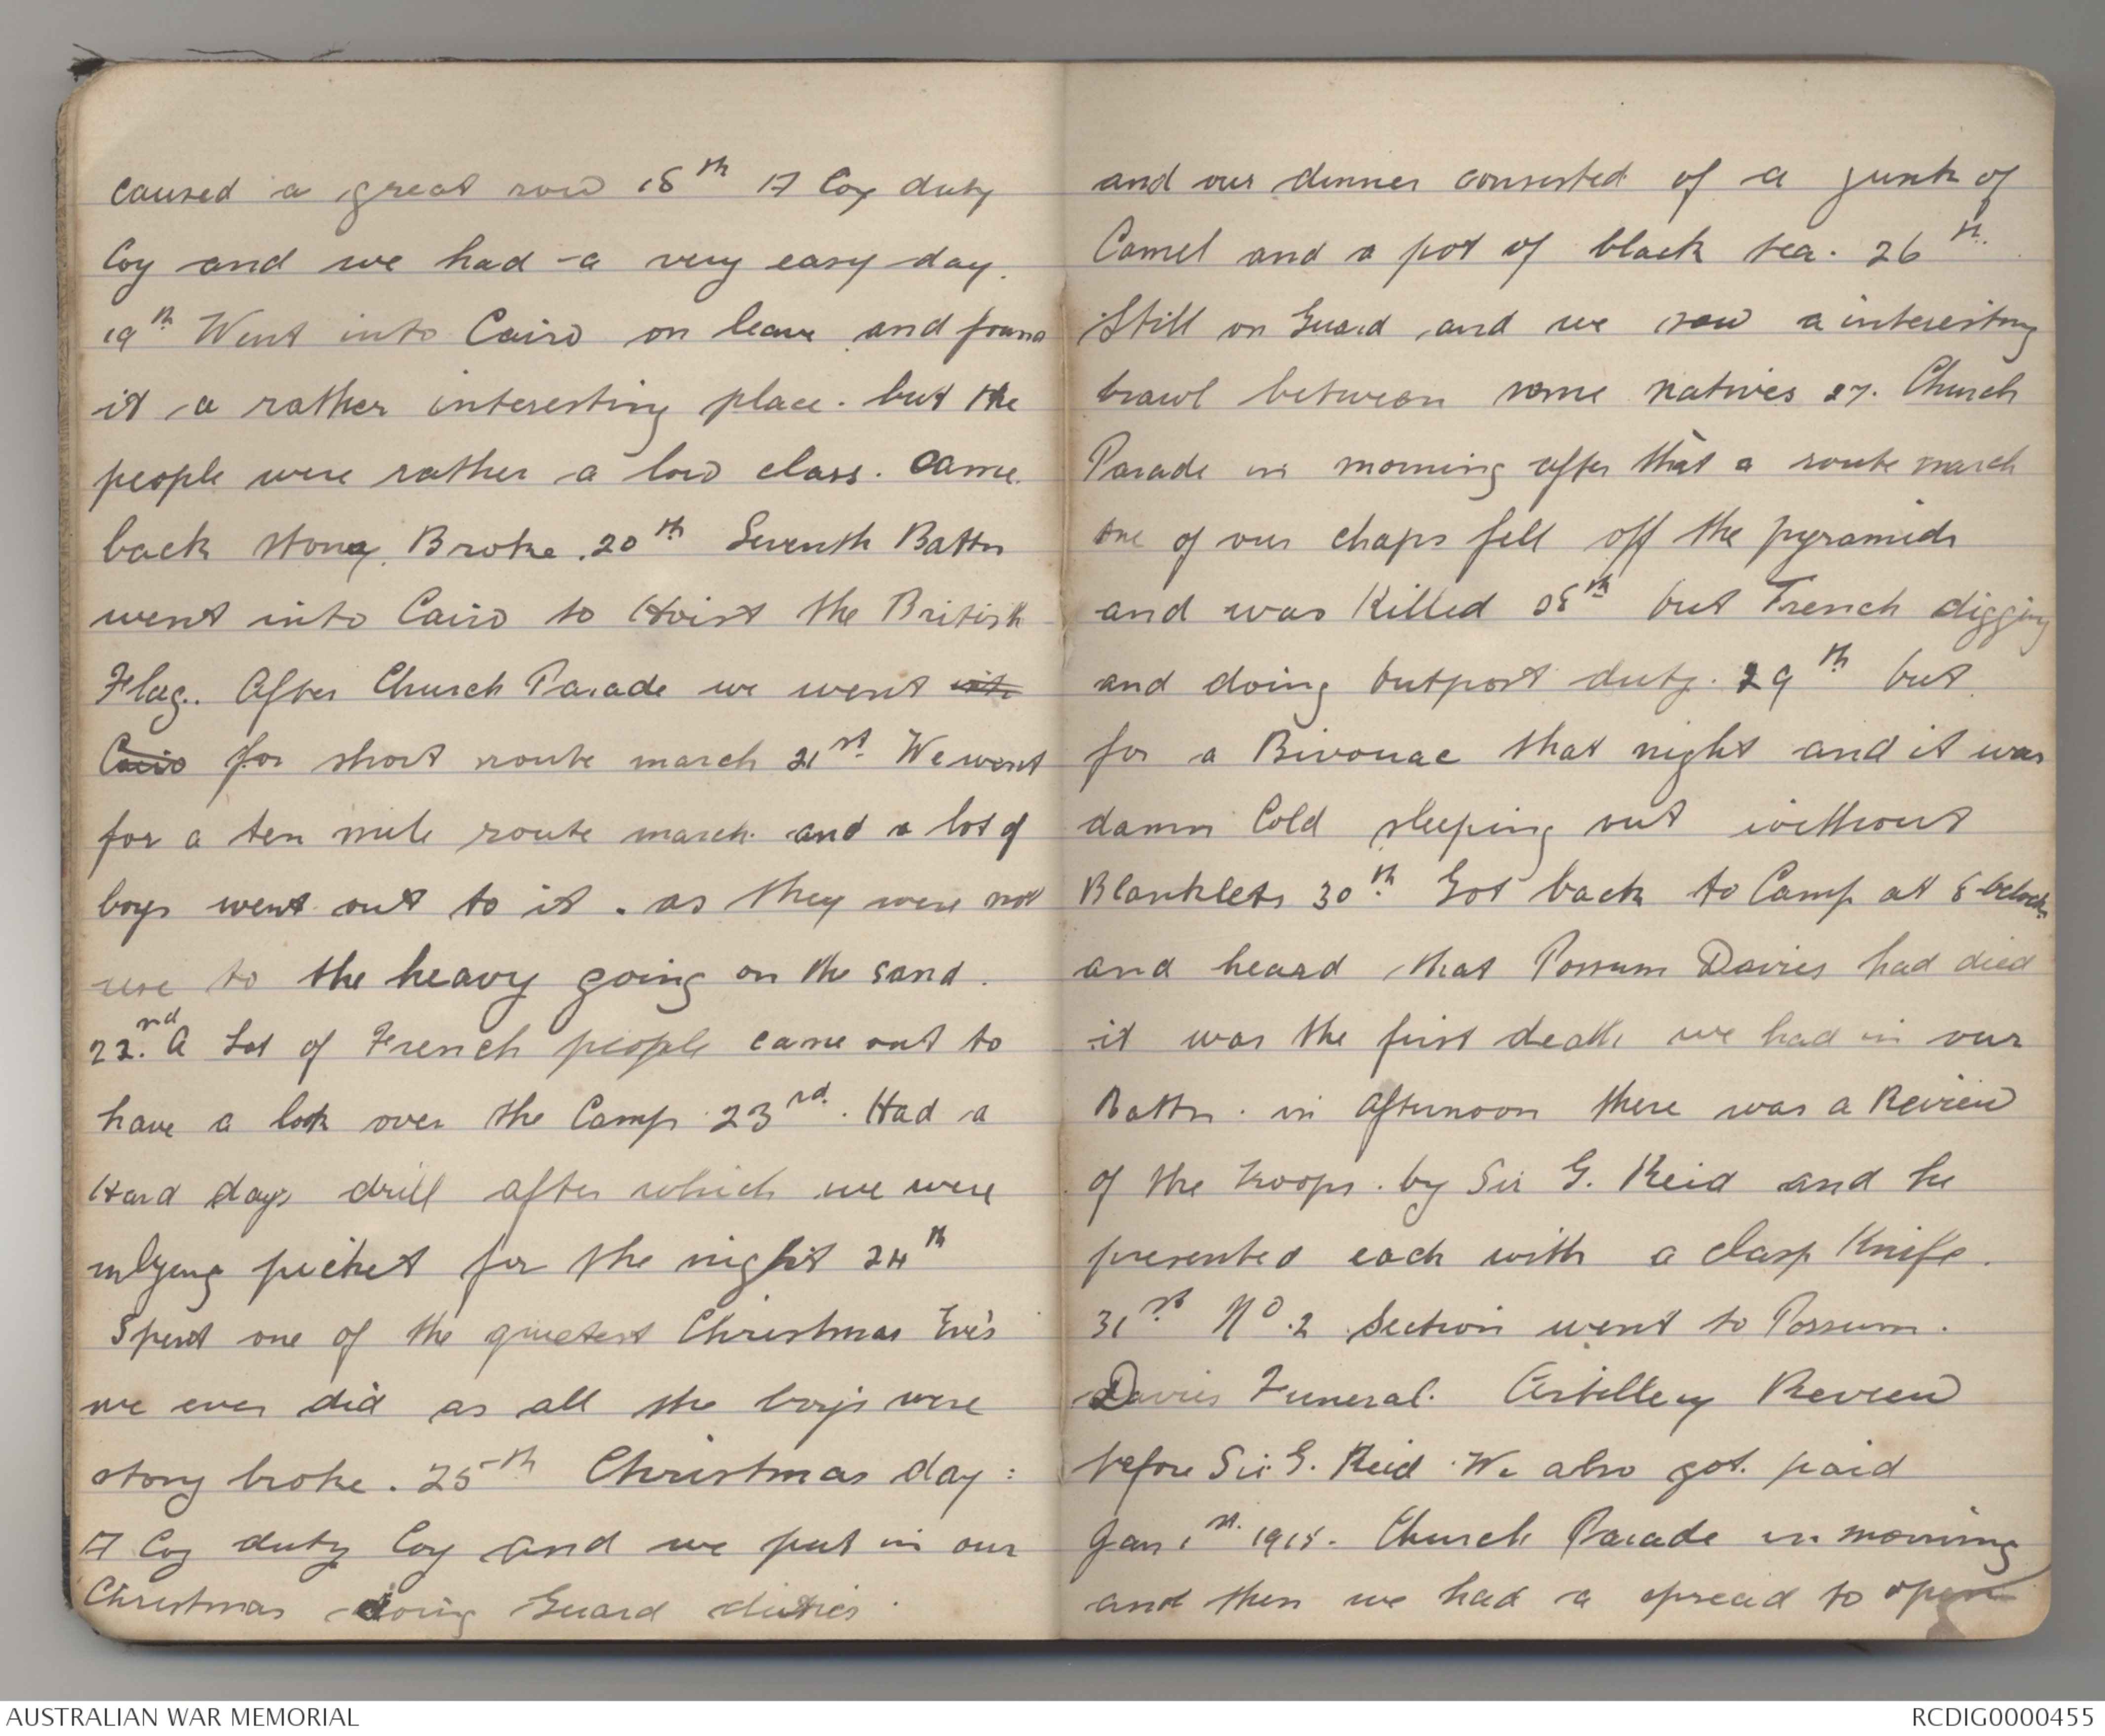 caused a great row 18th H Coy duty
Coy and we had a very easy day.
19th Went into Cairo on leave and found
it a rather interesting place. but the
people were rather a low class. Came
back stony Broke. 20th Seventh Battn
went into Cairo to Hoist the British
Flag. After Church Parade we went into
Cairo for short route march 21st We went
for a ten mile route march and a lot of
boys went out to it. as they were not
use to the heavy going on the sand.
22nd. A Lot of French people came out to
have a look over the Camp 23rd. Had a
Hard days drill after which we were
inlying picket for the night 24th
Spent one of the quietest Christmas Eve's
we ever did as all the boys were
stony broke. 25th Christmas day:
H Coy duty Coy and we put in our
Christmas doing Guard duties
and our dinner consisted of a junk of
Camel and a pot of black tea. 26th.
Still on Guard and we saw a interesting
brawl between some natives 27. Church
Parade in morning after that a route march
one of our chaps fell off the pyramids
and was Killed 28th out Trench digging
and doing Outpost duty. 29th Out
for a Bivouac that night and it was
damn Cold sleeping out without
Blanklets 30th Got back to Camp at
and heard that Possum Davies had died
it was the first death we had in our
Battn. in Afternoon there was a Review
of the troops. by Sir G. Reid and he
presented each with a clasp Knife.
31st No. 2 Section went to Possum.
Davies Funeral. Artillery Review
before Sir. G. Reid. We also got. paid
Jan 1st. 1915. Church Parade in morning
and then we had a spread to open
AUSTRALIAN WAR MEMORIAL
RCDIG0000455